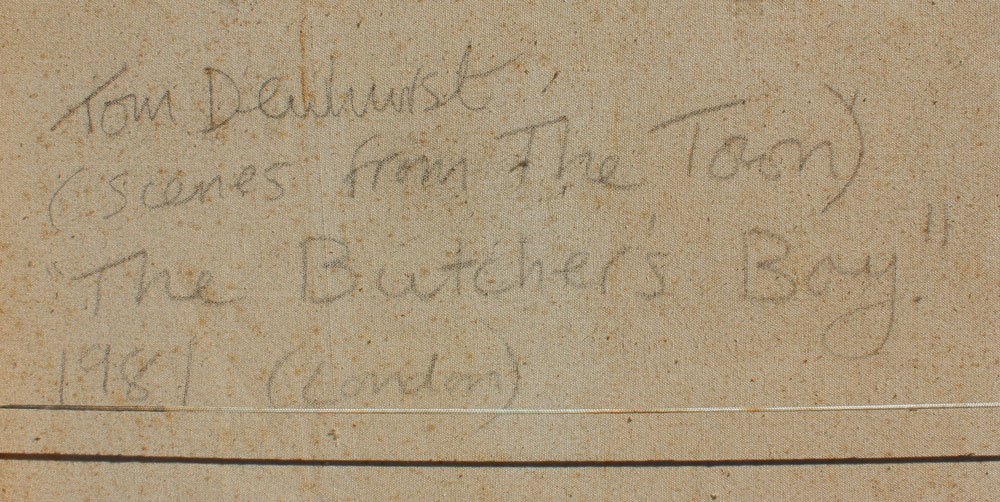 Tom Dewhurst
(scenes from The Toon)
"The Butcher's Boy."
1981 (London)